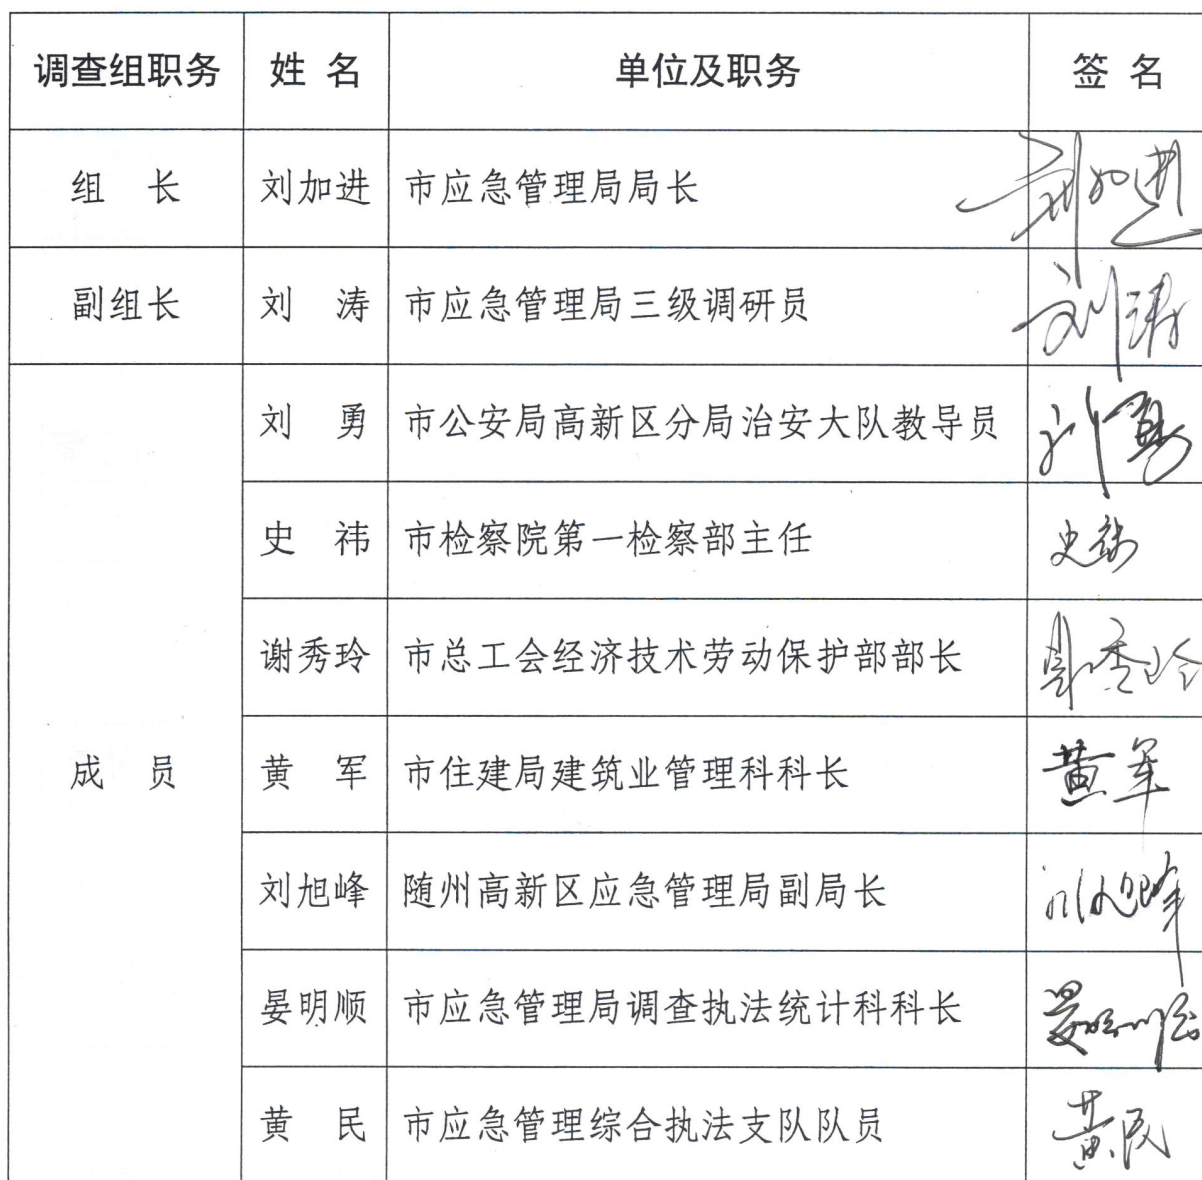 调查组职务 姓 名 单位及职务 签 名
组 长 刘加进 市应急管理局局长 刘加进
副组长 刘 涛 市应急管理局三级调研员 刘涛
刘 勇 市公安局高新区分局治安大队教导员 刘勇
史 祎 市检察院第一检察部主任 史祎
谢秀玲 市总工会经济技术劳动保护部部长 谢秀玲
成 员 黄 军 市住建局建筑业管理科科长 黄军
刘旭峰 随州高新区应急管理局副局长 刘旭峰
晏明顺 市应急管理局调查执法统计科科长 晏明顺
黄 民 市应急管理综合执法支队队员 黄民